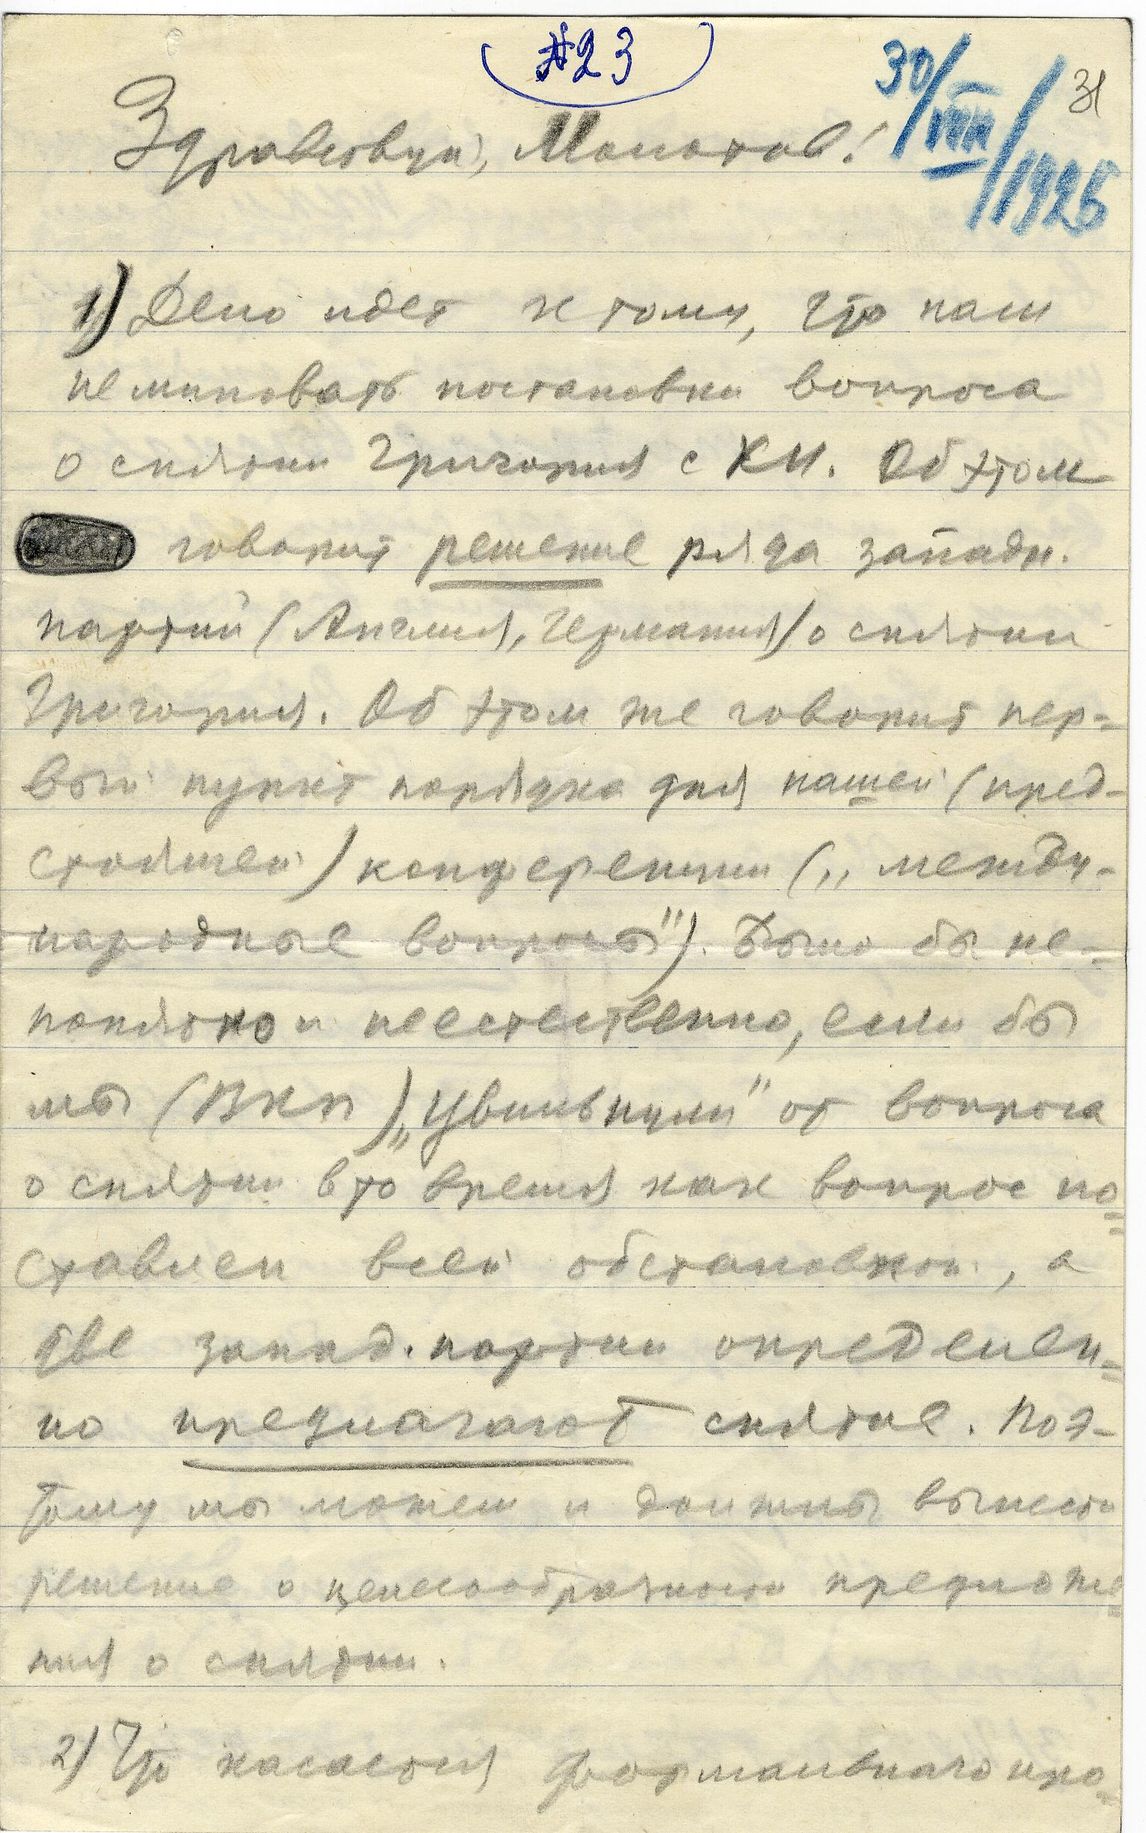 #23
30/VIII/1926
31
Здравствуй, Молотов!
1) Дело идет к тому, что нам
не миновать постановки вопроса
о снятии Григория с КИ. Об этом
говорит решение ряда западн.
партий (Англия, Германия) о снятии
Григория. Об этом же говорит пер-
вый пункт порядка дня нашей (пред-
стоящей) конференции („между-
народные вопросы"). Было бы не-
понятно и неестественно, если бы
мы (ВКП) „увильнули" от вопроса
о снятии в то время как вопрос по-
ставлен всей обстановкой, а
две запад. партии определен-
но предлагают снятие. Поэ-
тому мы можем и должны вынести
решение о целесообразности предложе-
ния о снятии.
2) Что касается формального про-